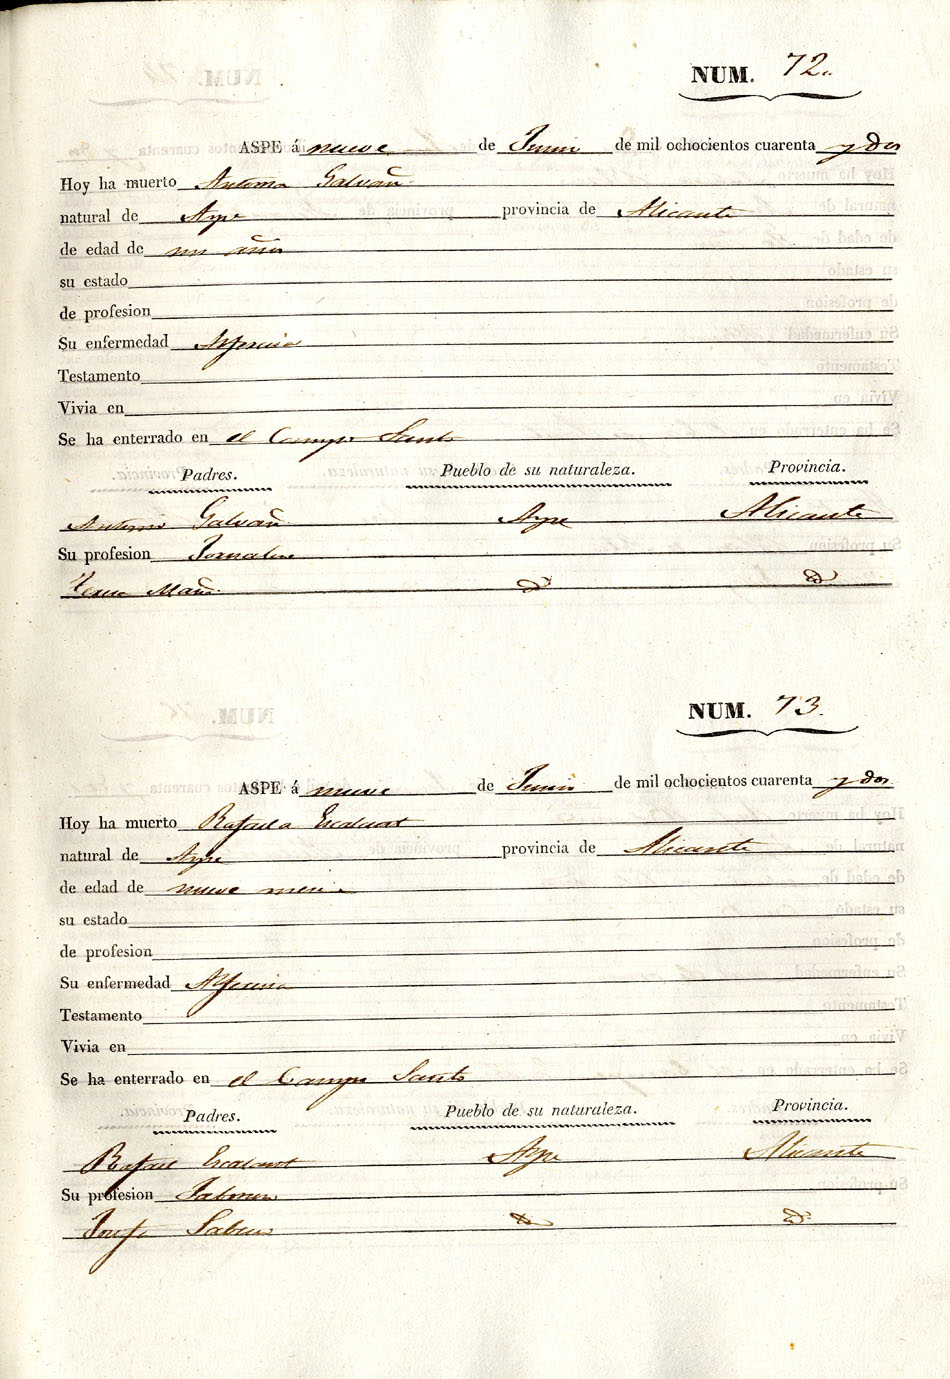 NUM. 72.
ASPE á nueve de Junio de mil ochocientos cuarenta y dos
Hoy ha muerto Antonia Galvañ
natural de Aspe provincia de Alicante
de edad de un año
su estado
de profesion
Su enfermedad Alferecia
Testamento
Vivia en
Se ha enterrado en el Campo Santo
Padres. Pueblo de su naturaleza. Provincia.
Antonio Galvañ Aspe Alicante
Su profesion Jornalero
Teresa Mañ Id. Id.
NUM. 73.
ASPE á nueve de Junio de mil ochocientos cuarenta y dos
Hoy ha muerto Rafaela Escolano
natural de Aspe provincia de Alicante
de edad de nueve meses
su estado
de profesion
Su enfermedad Alferecia
Testamento
Vivia en
Se ha enterrado en el Campo Santo
Padres. Pueblo de su naturaleza. Provincia.
Rafael Escolano Aspe Alicante
Su profesion
Josefa Id. Id.